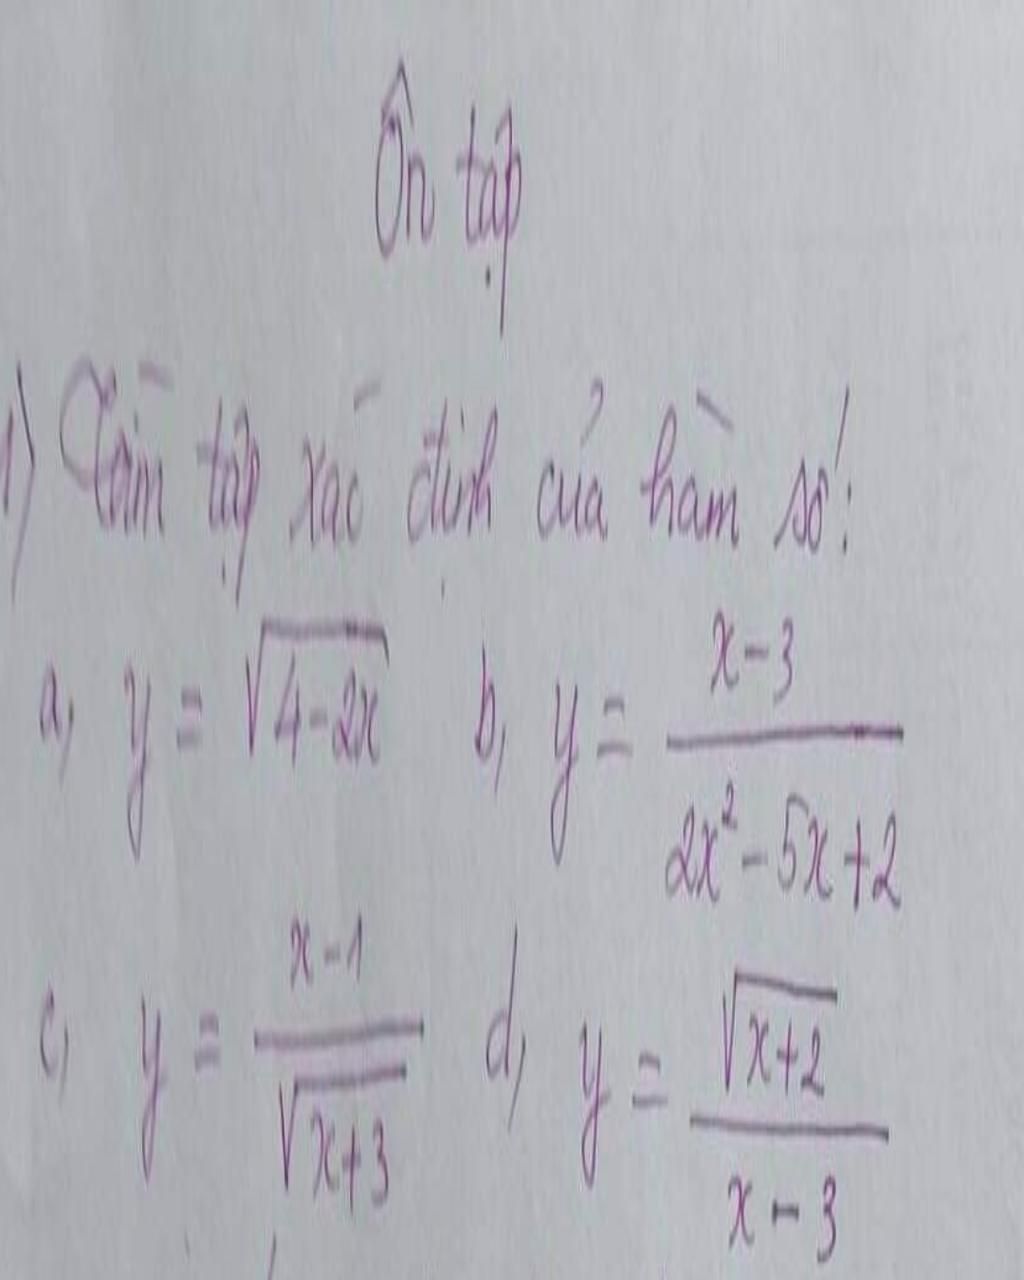 Ôn tập
1) Tìm tập xác định của hàm số:
a, y = √(4-2x)   b, y = (x-3)/(2x²-5x+2)
c, y = (x-1)/√(x+3)   d, y = √(x+2)/(x-3)